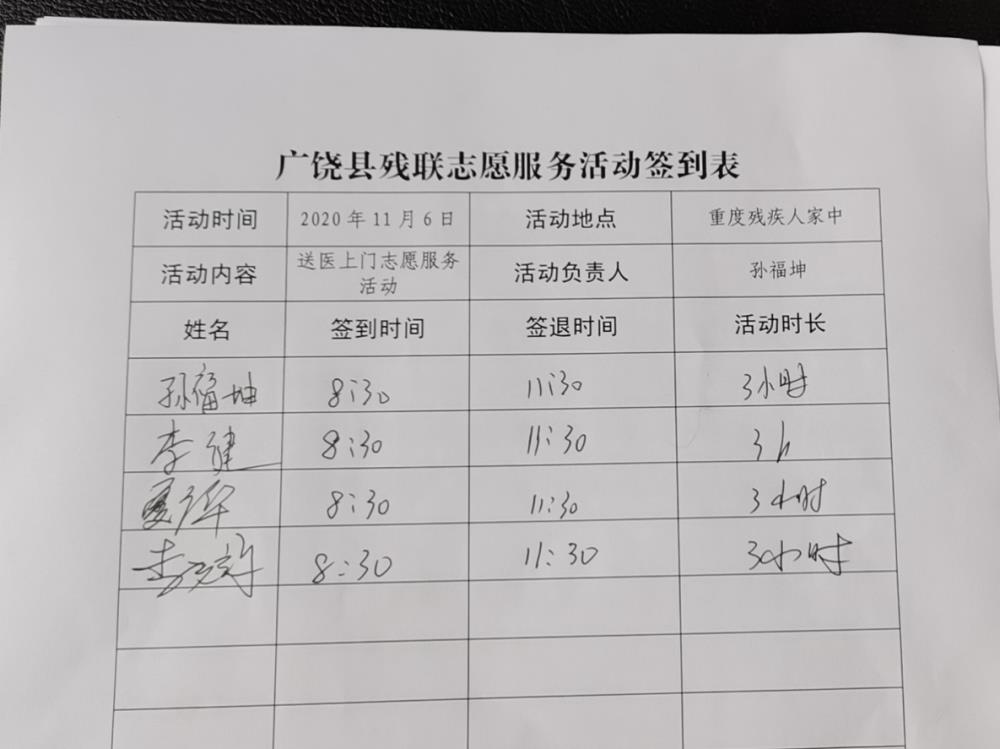 广饶县残联志愿服务活动签到表
活动时间 2020年11月6日 活动地点 重度残疾人家中
活动内容 送医上门志愿服务活动 活动负责人 孙福坤
姓名 签到时间 签退时间 活动时长
孙福坤 8:30 11:30 3小时
李健 8:30 11:30 3h
8:30 11:30 3小时
8:30 11:30 3小时